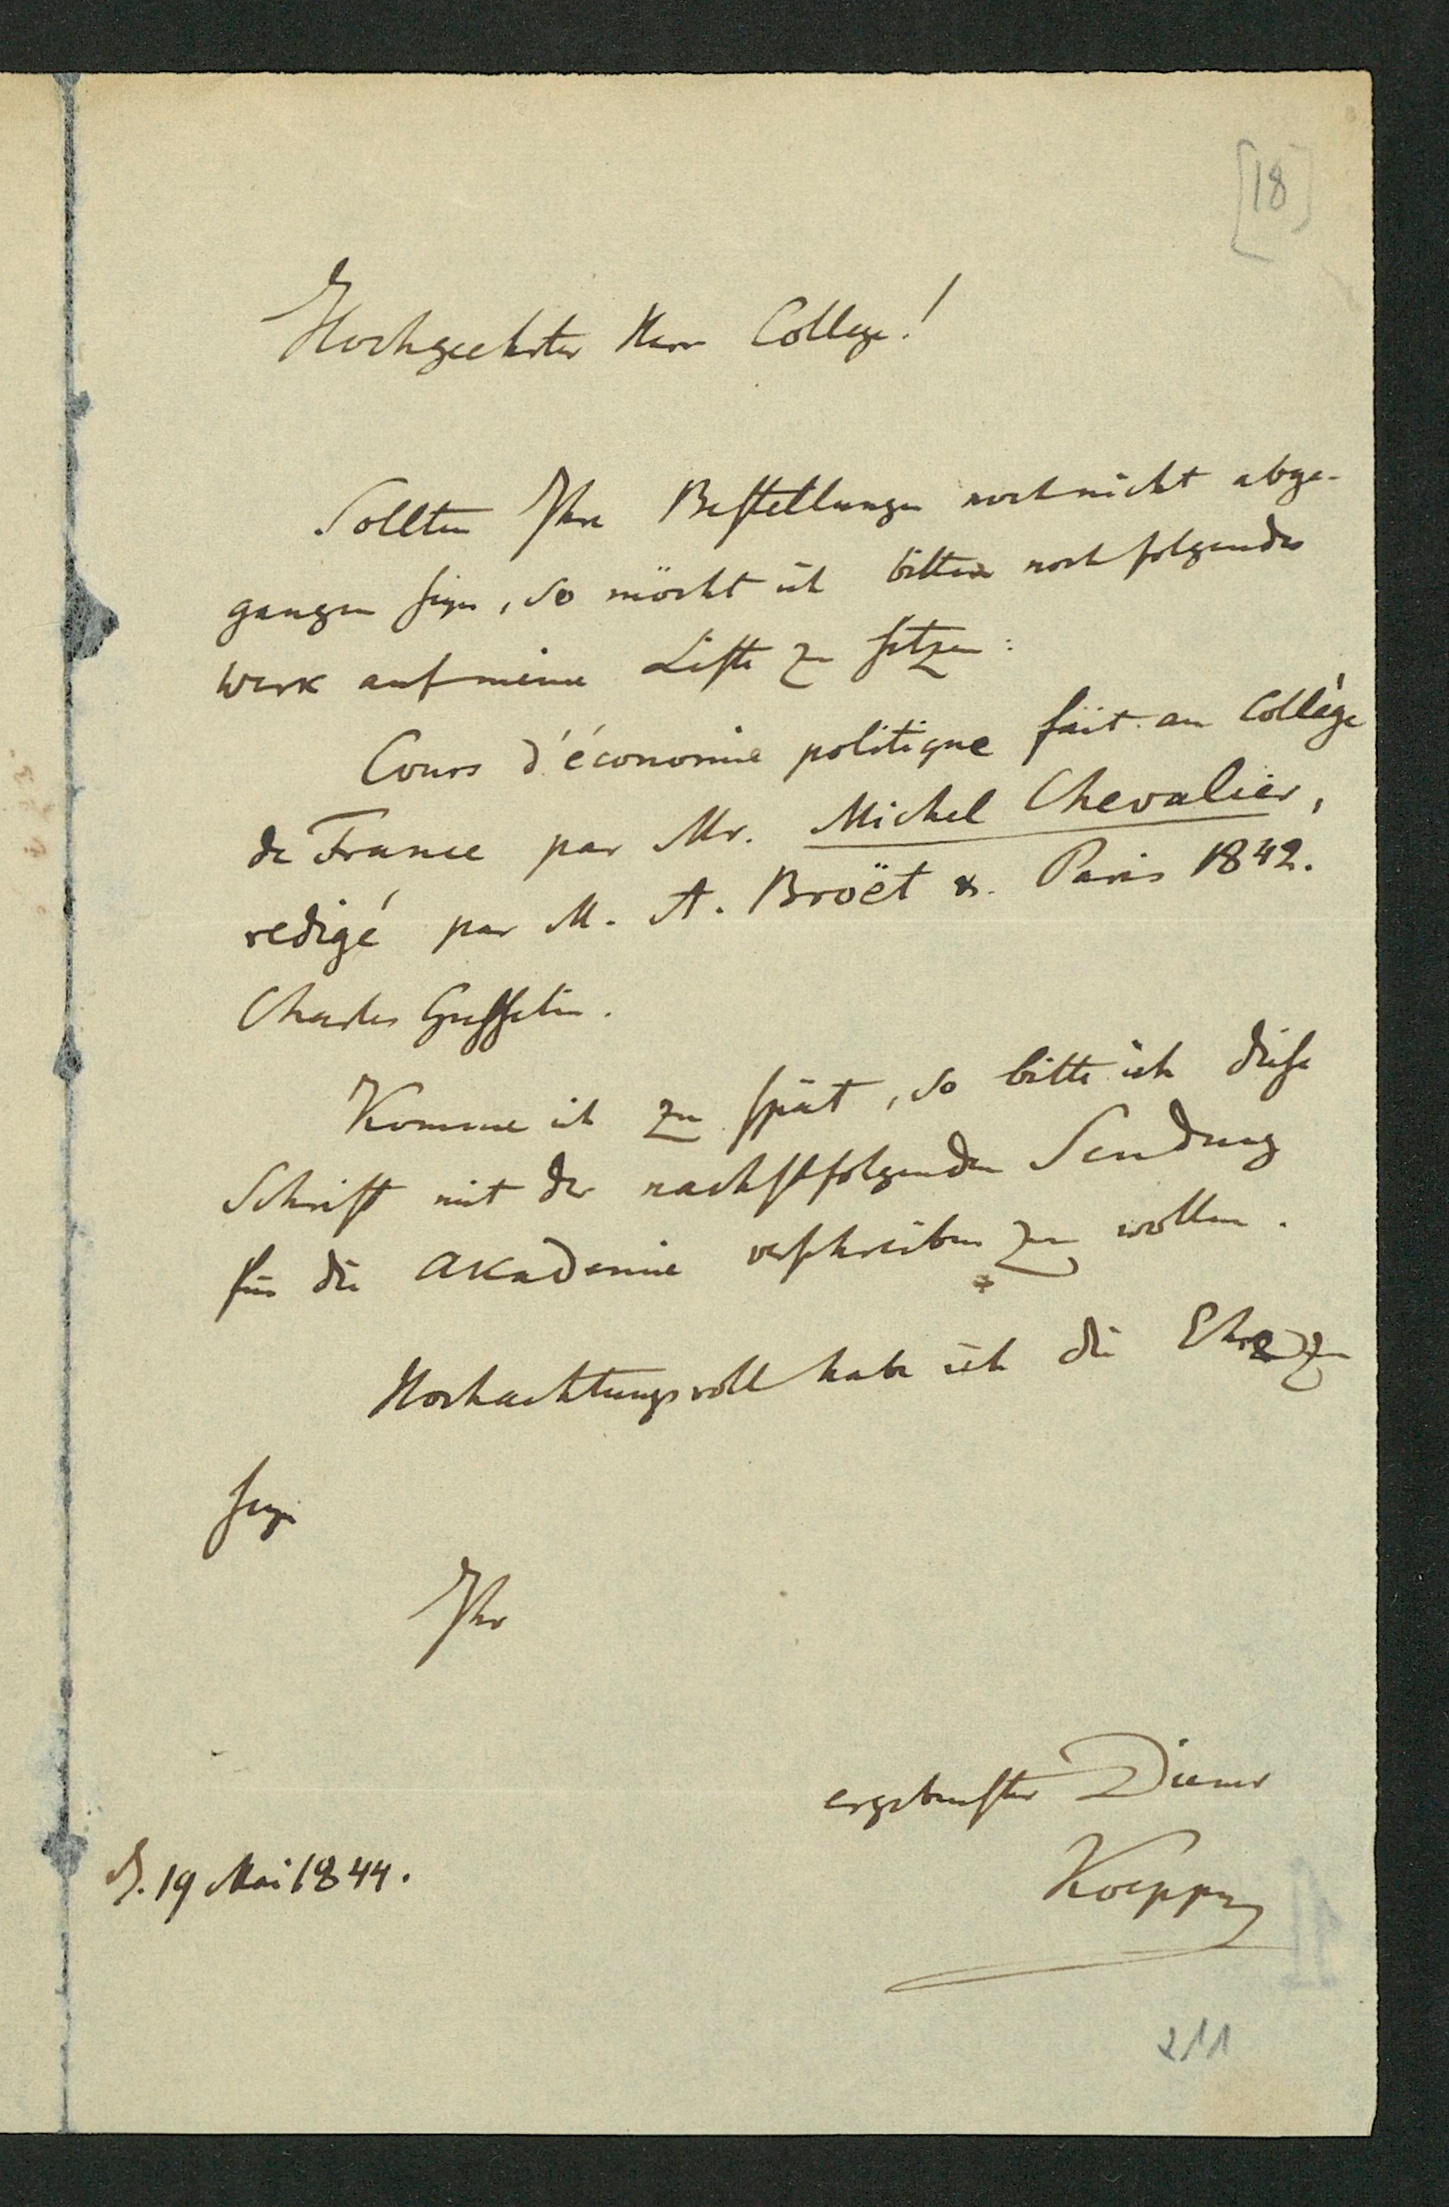 [18]
Hochgeehrter Herr College!
Sollten Ihre Bestellungen noch nicht abge-
gangen seyn, so möcht ich bitten noch folgendes
Werk auf meine Liste zu setzen:
Cours d'économie politique fait au Collège
de France par Mr. Michel Chevalier,
redigé par M. A. Broët &. Paris 1842.
Charles Gosselin.
Komme ich zu spät, so bitte ich diese
Schrift mit der nachstfolgenden Sendung
für die Akademie verschreiben zu wollen.
Hochachtungsvoll habe ich die Ehre zu
seyn
Ihr
ergebenster Diener
Koeppen
d. 19 Mai 1844.
211